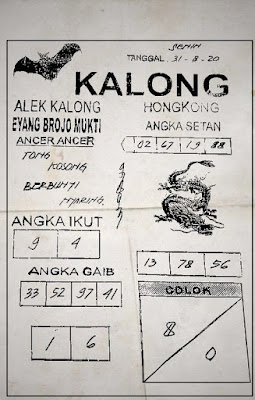 SENIN
TANGGAL : 31 - 8 - 20
KALONG
ALEK KALONG
EYANG BROJO MUKTI
ANCER ANCER
HONGKONG
ANGKA SETAN
02 67 19 88
TONG
KOSONG
BERBUNYI
NYARING
ANGKA IKUT
9 4
ANGKA GAIB
33 52 97 41
1 6
13 78 56
COLOK
8
0